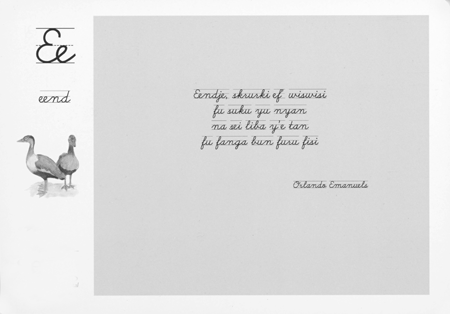 Ee
eend
Eendje, skrurki ef' wiswisi
fu suku yu nyan
na sei liba y'e tan
fu fanga bun furu fisi
Orlando Emanuels